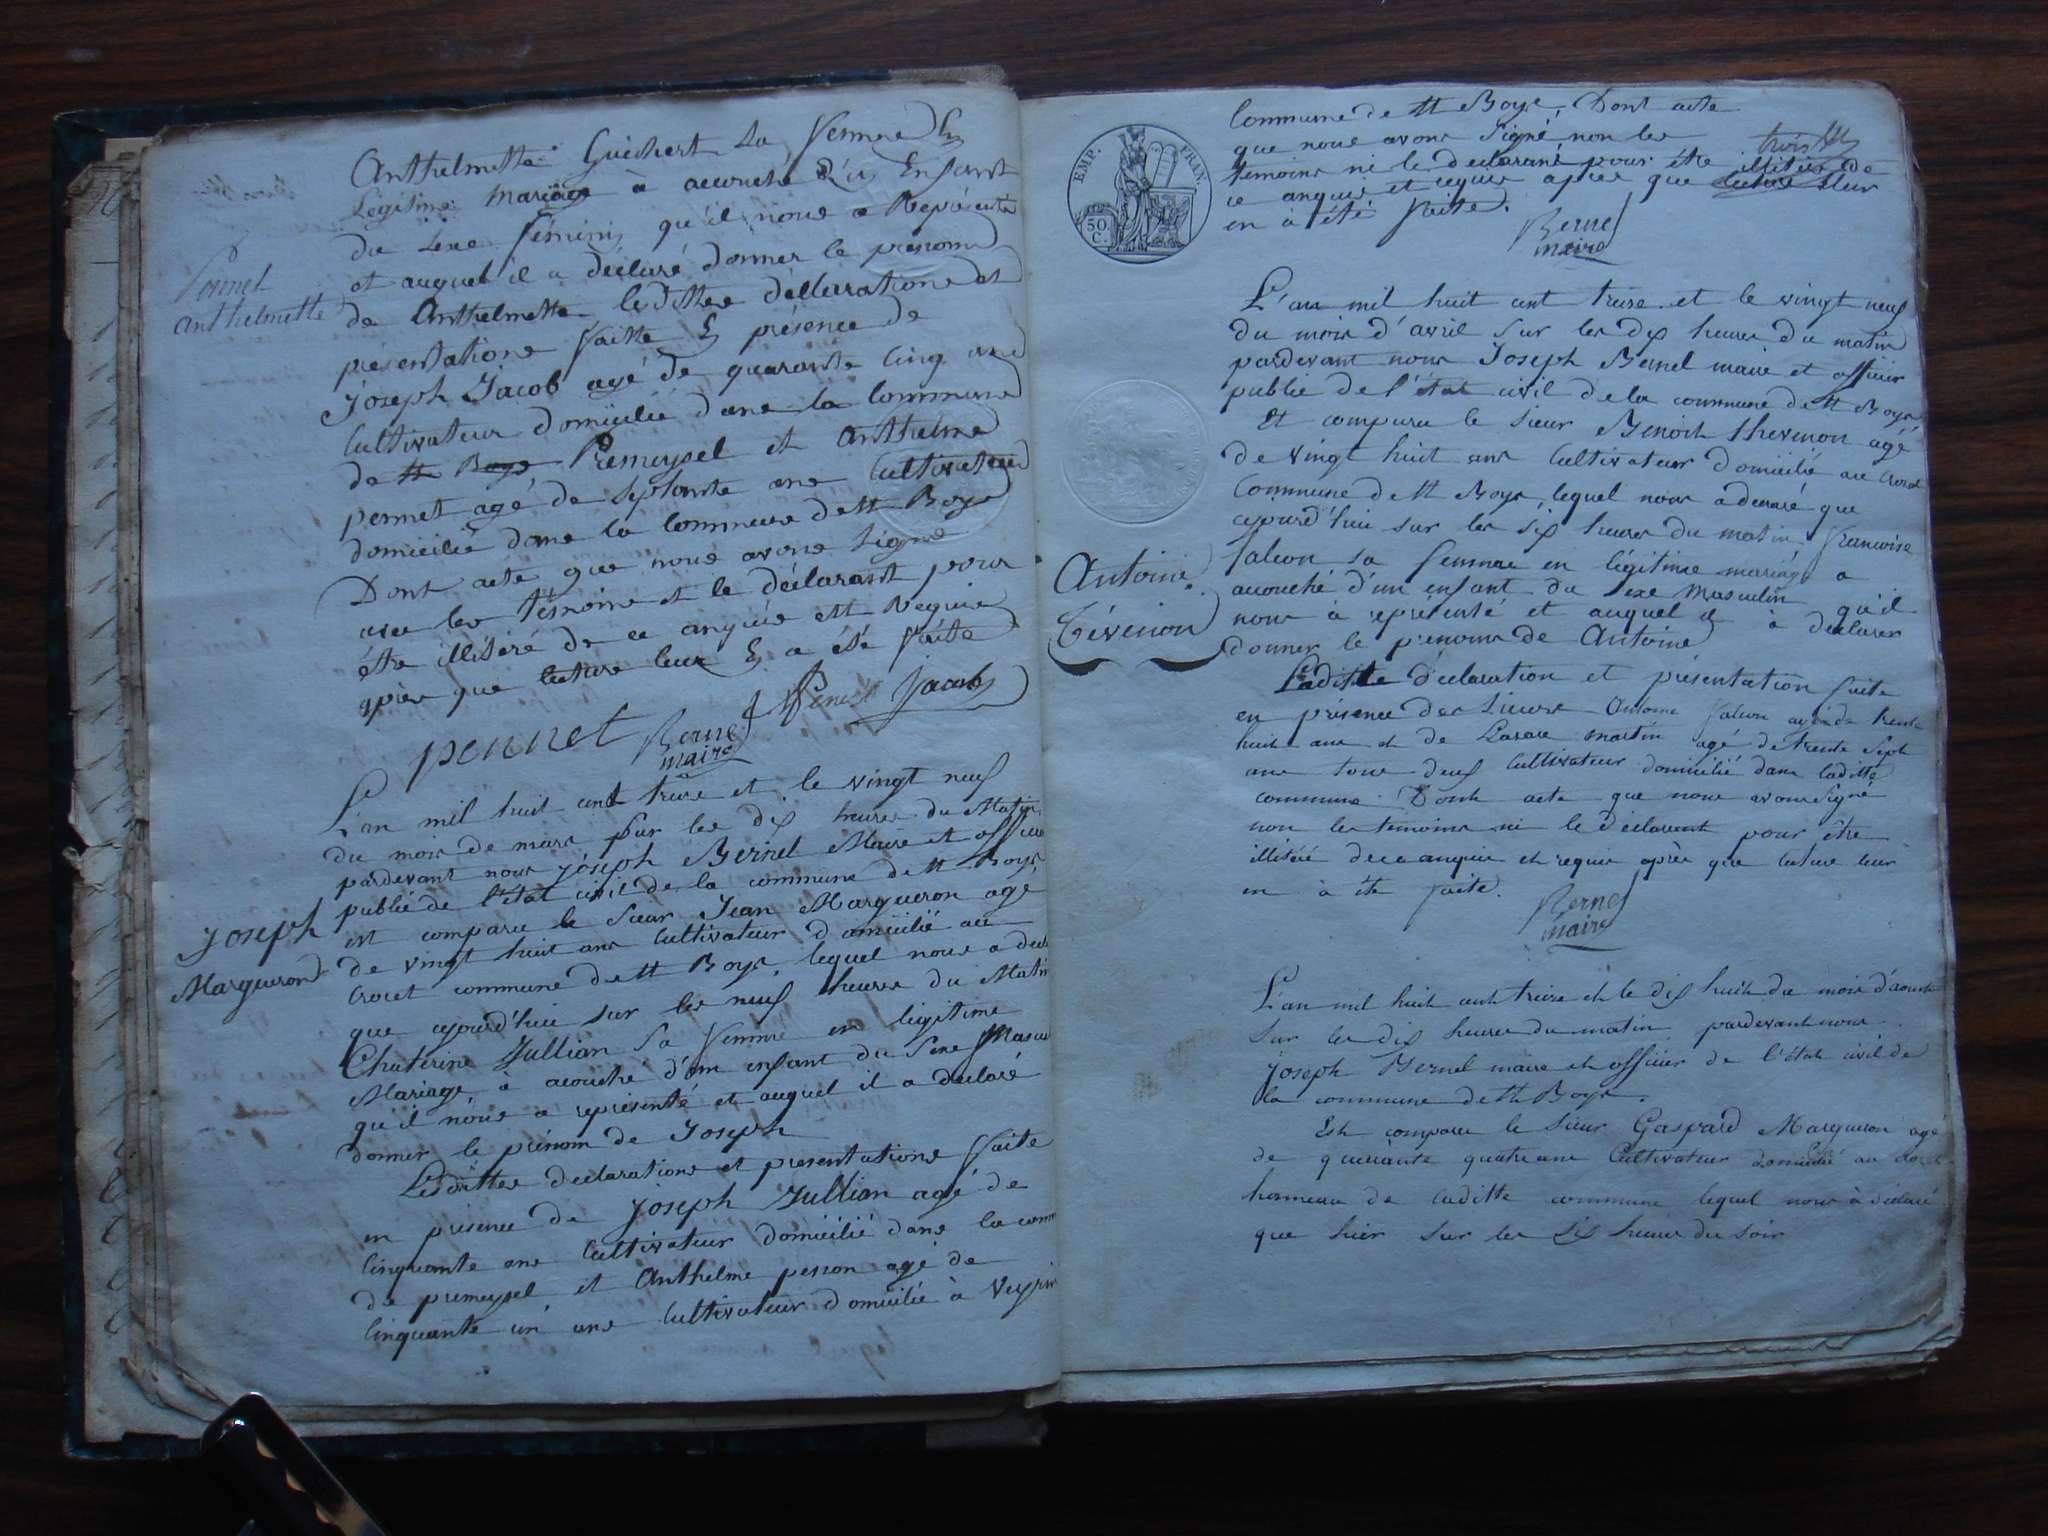 Anthelmette Guichert sa femme En
Légitime mariage à accouché d'un Enfant
du sexe féminin qu'il nous a Représenté
et auquel il a déclaré donner le prénom
Pennet
Anthelmette
de Anthelmette lesdittes déclarations et
présentations faitte En présence de
Joseph Jacob agé de quarante cinq ans
Cultivateur domicilié dans la commune
de St Boys Premeysel et Anthelme
pennet agé de septante ans Cultivateur
domicilié dans la Commune de St Boys
Dont acte que nous avons signé
avec les témoins et le déclarant pour
être illitéré de ce anquis et Requis
après que lecture leur En a été faitte
pennet Bernel maire Penet Jacob
L'an mil huit cent treize et le vingt neuf
du mois de mars sur les dix heures du Matin
pardevant nous joseph Bernel Maire et officier
public de l'état civil de la commune de St Boys
Joseph
Margueron
est comparu le Sieur Jean Margueron agé
de vingt huit ans Cultivateur domicilié au
Crouet commune de St Boys, lequel nous a decl
que ajourd'hui sur les neuf heures du Matin
Chaterine Jullian sa femme en légitime
Mariage, à acouché d'un enfant du Sexe Mascu
qu'il nous a représenté et auquel il a déclaré
donner le prénom de Joseph
Lesdittes declarations et presentations faite
en présence de joseph Jullian agé de
Cinquante ans Cultivateur domicilié dans la comm
de premeysel et Anthelme pesson agé de
Cinquante un ans Cultivateur domicilié à Veyrin
EMP. FRAN.
50 C.
Commune de St Boys, Dont acte
que nous avons signé, non les
témoins ni le declarant pour être illitéré de
ce anquis et requis après que lecture leur
en à été faite.
Bernel
maire
L'an mil huit cent treize et le vingt neuf
du mois d'avril sur les dix heures du matin
pardevant nous Joseph Bernel maire et officier
public de l'état civil de la commune de St Boys
Et comparu le sieur Benoit thevenon agé
de vingt huit ans Cultivateur domicilié au
Commune de St Boys, lequel nous a declaré que
ajourd'hui sur les six heures du matin françoise
Antoine
Tévenon
falcon sa femme en légitime mariage a
acouché d'un enfant du sexe Masculin qu'il
nous à représenté et auquel il à declarer
donner le prénoms de Antoine
Laditte déclaration et présentation faite
en présence des Sieurs Antoine falcon agé de trente
huit ans et de Lazare martin agé de trente sept
ans tous deux Cultivateur domicilié dans laditte
commune. Dont acte que nous avons signé
non les temoins ni le déclarant pour être
illitéré de ce anquis et requis après que lecture leur
en à été faite.
Bernel
maire
L'an mil huit cent treize et le dix huit du mois d'aoust
sur les dix heures du matin pardevant nous
joseph Bernel maire et officier de l'état civil de
la commune de St Boys.
Est comparu le sieur Gaspard Margueron agé
de quarante quatre ans Cultivateur domicilié au
hameau de laditte commune lequel nous à déclaré
que hier sur les six heures du soir